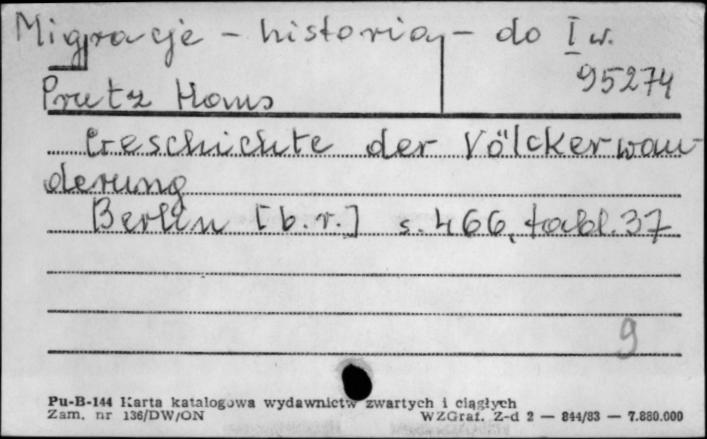 Migracje - historia - do I w.
95274
Prutz Hans
Geschichte der Völckerwan-
derung
Berlin [b.r.] s. 466, tabl. 37
9
Pu-B-144 Karta katalogowa wydawnictw zwartych i ciągłych
Zam. nr 136/DW/ON WZGraf. Z-d 2 — 844/83 — 7.880.000